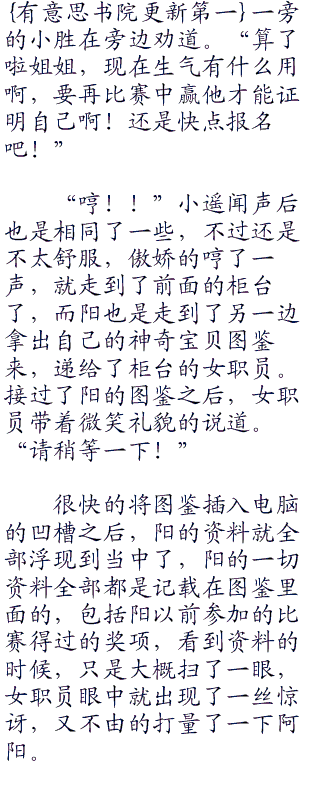 {有意思书院更新第一}一旁
的小胜在旁边劝道。“算了
啦姐姐，现在生气有什么用
啊，要再比赛中赢他才能证
明自己啊！还是快点报名
吧！”
“哼！！”小遥闻声后
也是相同了一些，不过还是
不太舒服，傲娇的哼了一
声，就走到了前面的柜台
了，而阳也是走到了另一边
拿出自己的神奇宝贝图鉴
来，递给了柜台的女职员。
接过了阳的图鉴之后，女职
员带着微笑礼貌的说道。
“请稍等一下！”
很快的将图鉴插入电脑
的凹槽之后，阳的资料就全
部浮现到当中了，阳的一切
资料全部都是记载在图鉴里
面的，包括阳以前参加的比
赛得过的奖项，看到资料的
时候，只是大概扫了一眼，
女职员眼中就出现了一丝惊
讶，又不由的打量了一下阿
阳。